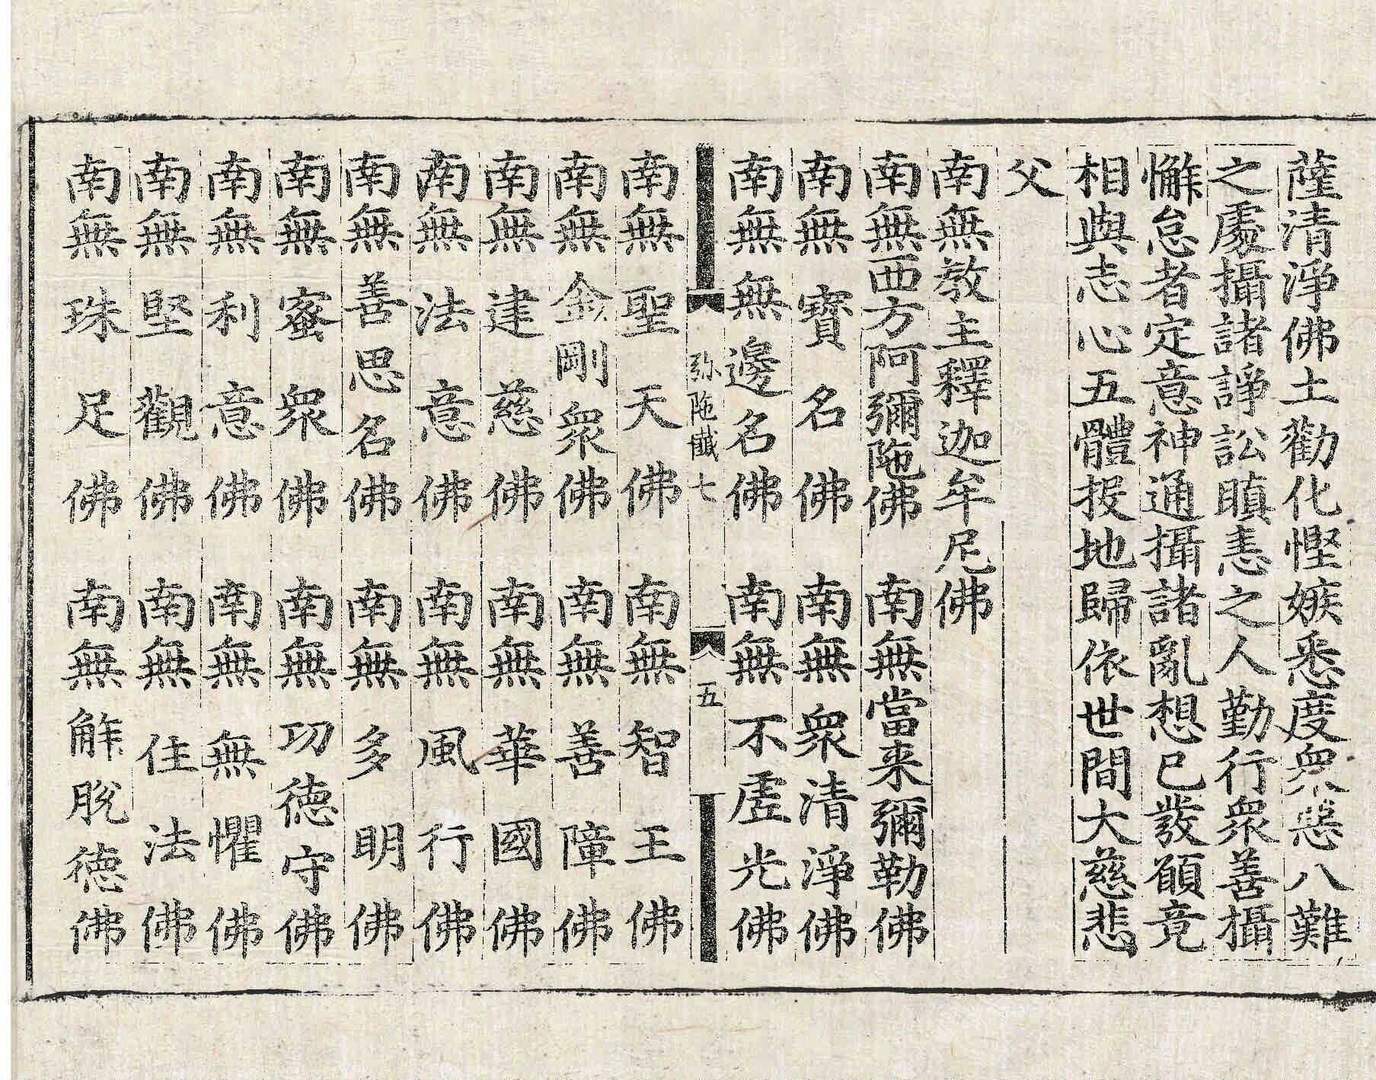 薩清淨佛土勸化慳嫉悉度衆惡八難
之處攝諸諍訟瞋恚之人勤行衆善攝
懈怠者定意神通攝諸亂想已發願竟
相與志心五體投地歸依世間大慈悲
父
南無教主釋迦牟尼佛
南無西方阿彌陁佛 南無當來彌勒佛
南無寶名佛 南無衆清淨佛
南無無邊名佛 南無不虛光佛
弥陁懴七 五
南無聖天佛 南無智王佛
南無金剛衆佛 南無善障佛
南無建慈佛 南無華國佛
南無法意佛 南無風行佛
南無善思名佛 南無多明佛
南無蜜衆佛 南無功德守佛
南無利意佛 南無無懼佛
南無堅觀佛 南無住法佛
南無珠足佛 南無解脫德佛